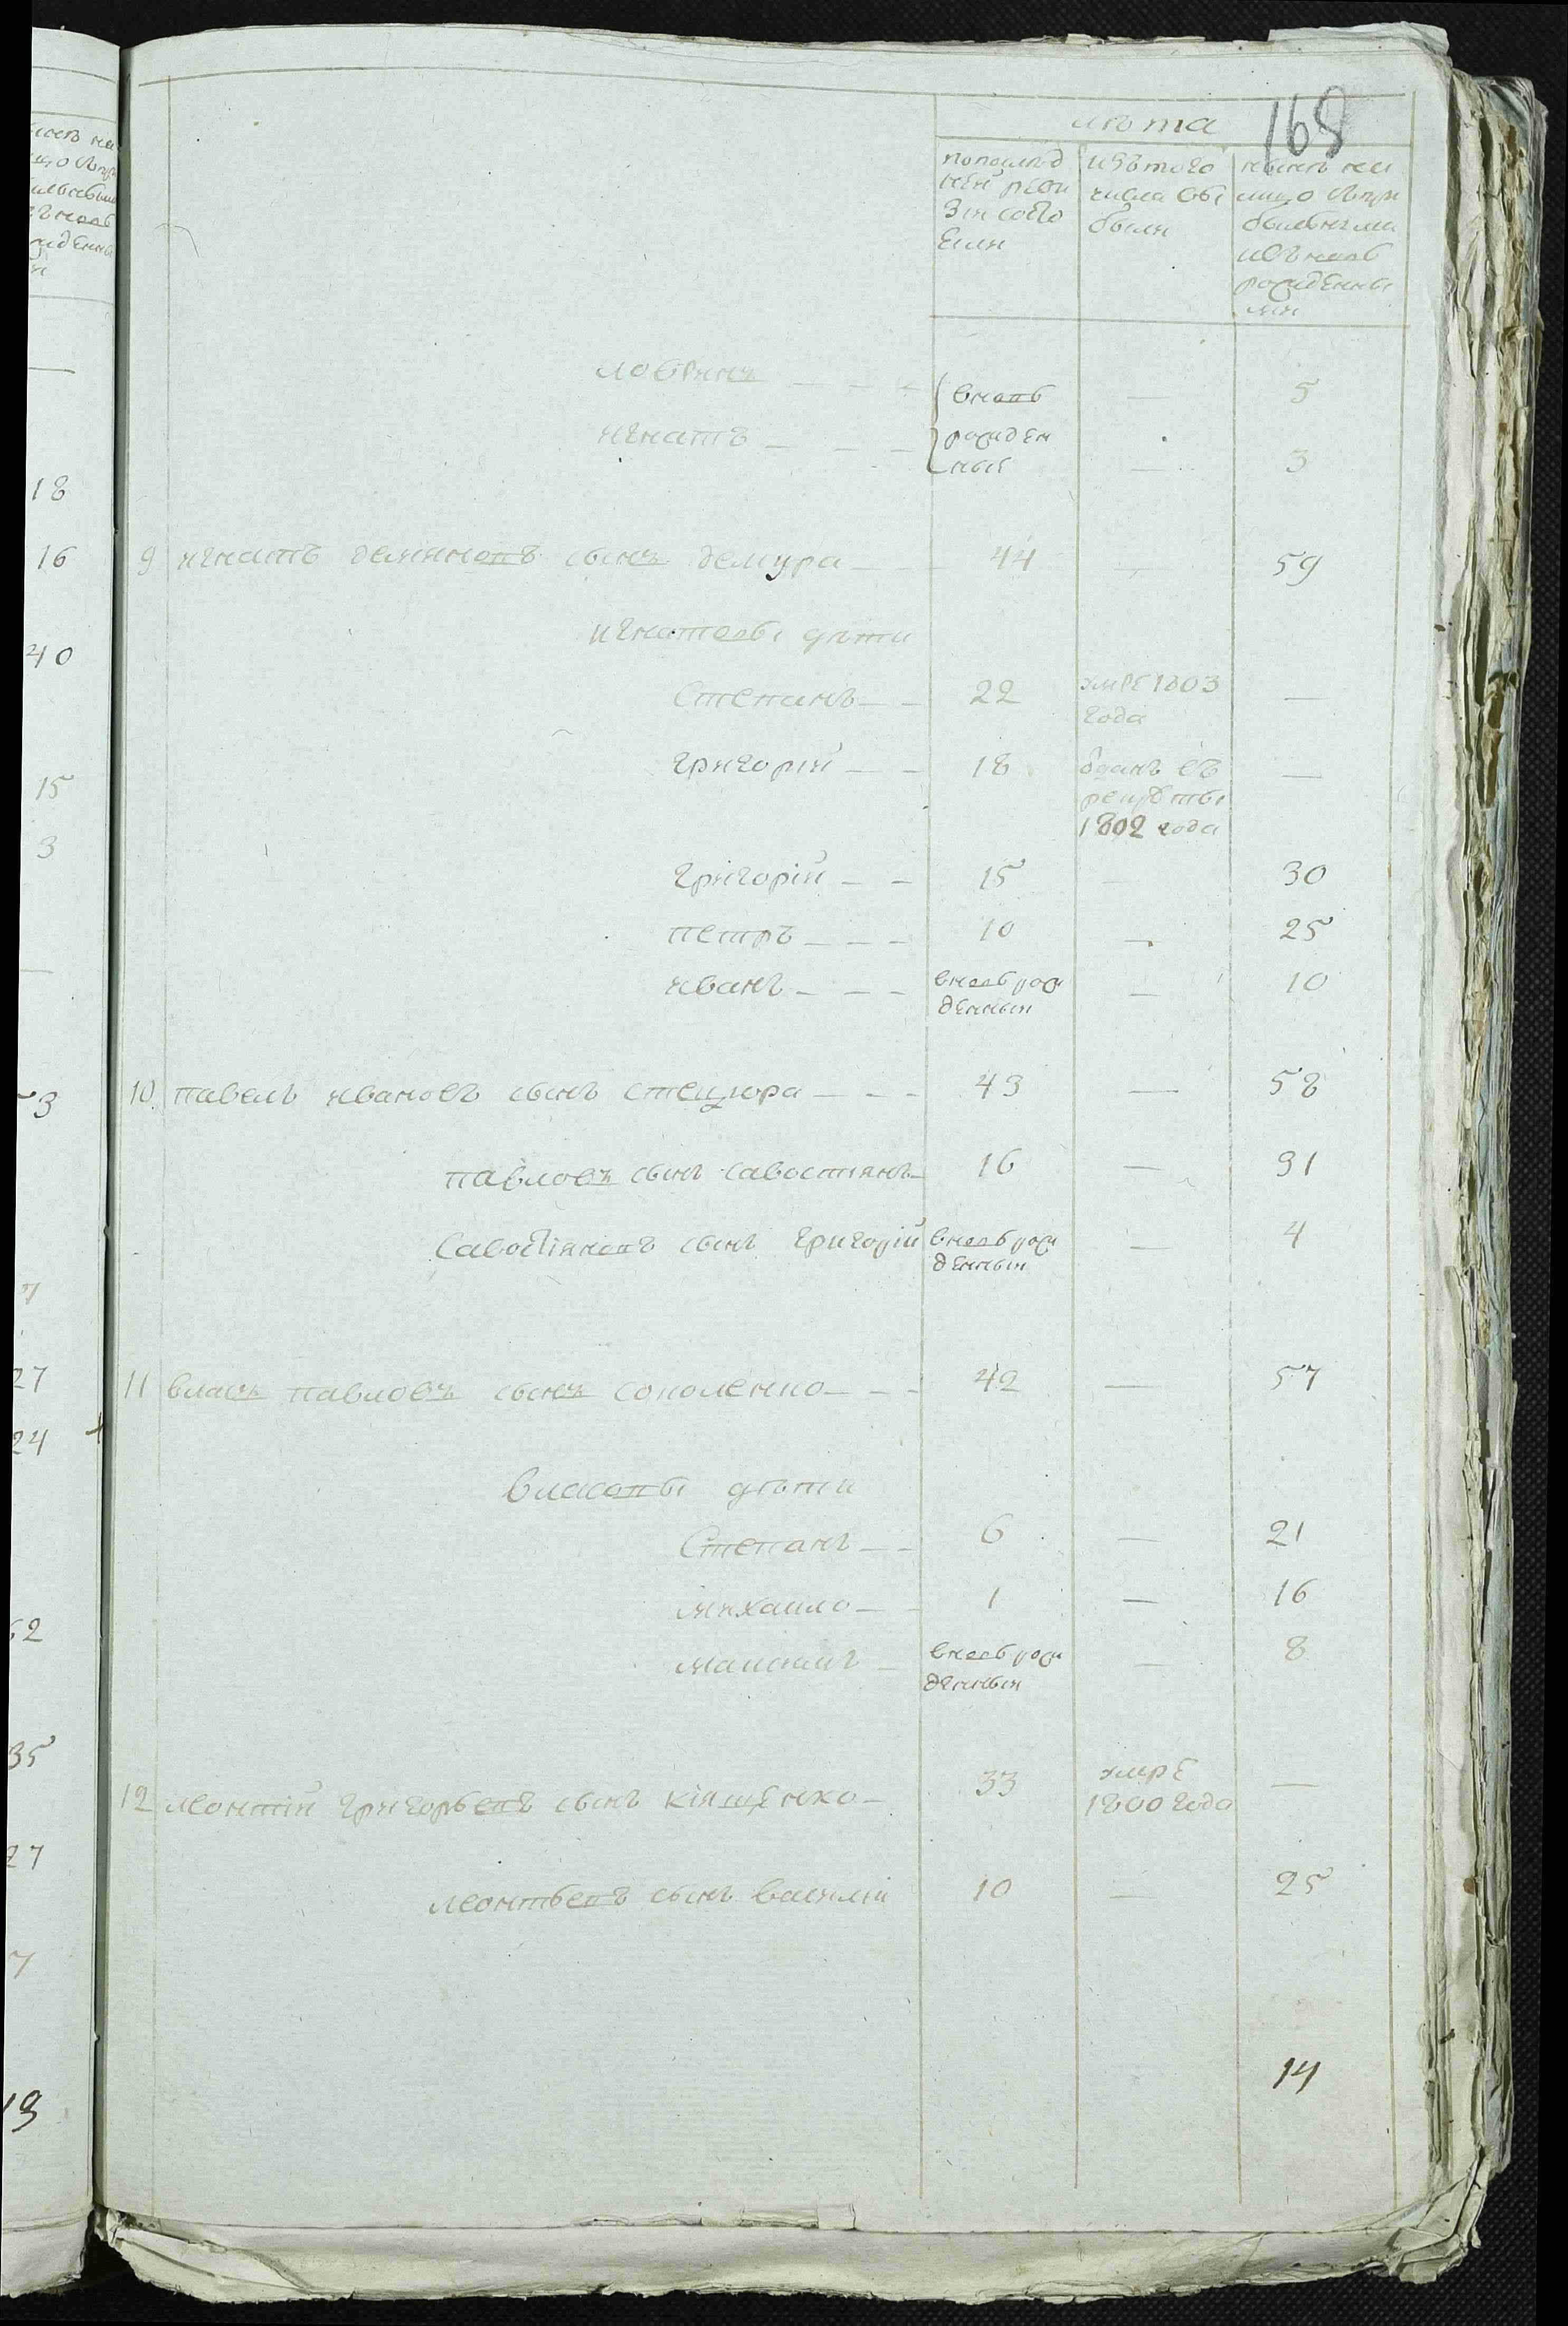 168
лѣта
попослѣд
ней реви
зіи состо
ели
изътого
числа вы
были
нынѣ на
лицо
рожденны
ми
вновь
рожден
ные
— 5
игнатъ — — —
— 3
9 игнатъ демяновъ сынъ демура — 44 — 59
игнатовы дѣти
степанъ — — 22 умре 1803
года —
григорій — — 18 зданъ въ
рекруты
1802 года —
григорій — — 15 — 30
петръ — — — 10 — 25
иванъ — — — вновь рож
денныи — 10
10 павелъ ивановъ сынъ стецюра — — — 43 — 58
павловъ сынъ савостиянъ — 16 — 31
савостіяновъ сынъ григорій вновь рож
денныи — 4
11 власъ павловъ сынъ соколенко — — — 42 — 57
власовы дѣти
степанъ — — 6 — 21
михаило — — 1 — 16
максимъ — вновь рож
денныи — 8
12 леонтій григорьевъ сынъ кіященко — 33 умре
1800 года —
леонтьевъ сынъ василій 10 — 25
14
18
16
40
15
3
3
7
27
24
62
35
27
7
19